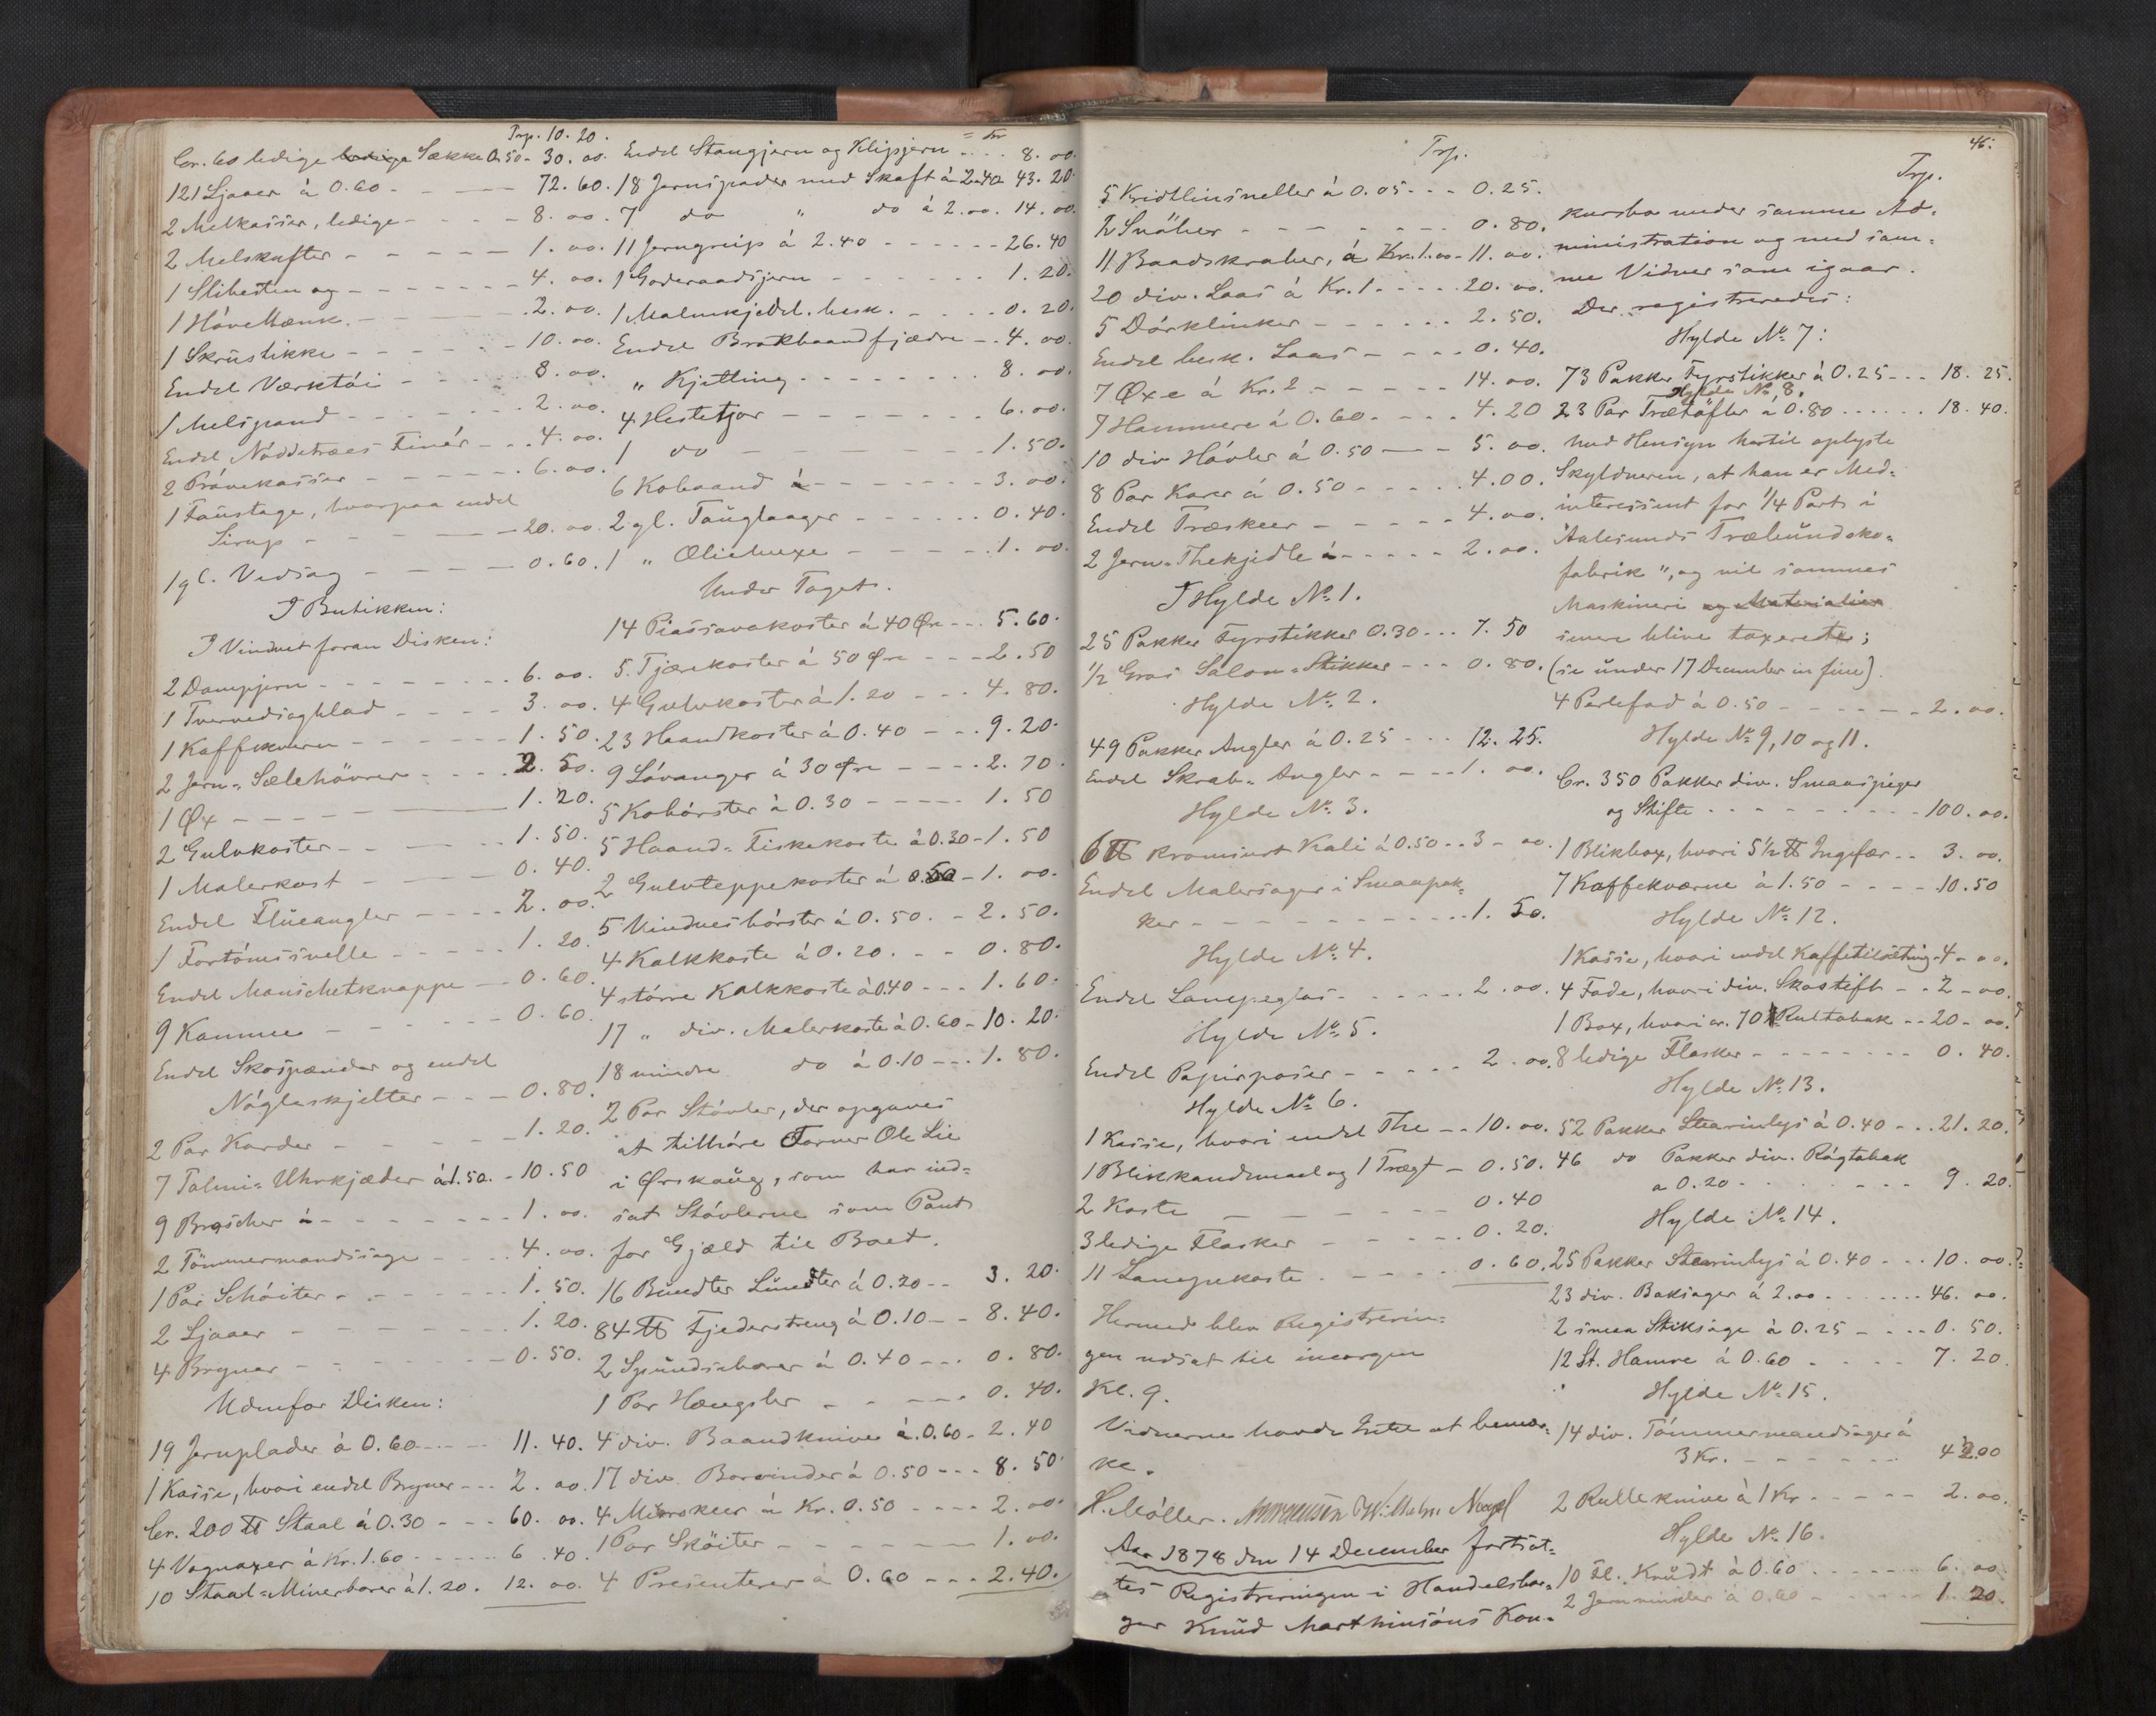 Trp. 10. 20.
Cr. 60 ledige ledige Sække 0.50 - 30. 00.
121 Ljaaer à 0.60 - - - 72. 60.
2 Melkasser, ledige - - - - 8. 00.
2 Melskufter - - - - - 1. 00.
1 Slibesten og - - - - - 4. 00.
1 Hövelbænk - - - - - 2. 00.
1 Skrüstikke - - - - - 10. 00.
Endel Værktöi - - - - - 8. 00.
1 Melspand - - - - - 2. 00.
Endel Nöddetræes Finér - - - 4. 00.
2 Prövekasser - - - - - 6. 00.
1 Faustage, hvorpaa endel
Sirup - - - - - 20. 00.
1 gl. Vedsag - - - - 0.60.
I Butikken:
I Vinduet foran Disken:
2 Dampjern - - - - - 6. 00.
1 Tvervedsagblad - - - - 3. 00.
1 Kaffekvern - - - - - 1. 50.
2 Jern-Sælehövrer - - - 2. 50.
1 Øx - - - - - 1. 20.
2 Gulvkoster - - - 1. 50.
1 Malerkost - - - - 0. 40.
Endel Flüeangler - - - - 2. 00.
1 Fortömssnelle - - - - 1. 20.
Endel Manschetknappe - - 0. 60.
9 Kamme - - - - - 0. 60.
Endel Skospænder og endel
Nögleskjelter - - - 0. 80.
2 Par Karder - - - - - 1. 20.
7 Talmi-Uhrkjæder à 1.50. - 10. 50
9 Broscher à - - - - - 1. 00.
2 Tömmermandssage - - - 4. 00.
1 Par Schöiter - - - - - 1. 50.
2 Ljaaer - - - - - 1. 20.
4 Bryner - - - - - 0. 50.
Udenfor Disken:
19 Jernplader à 0.60 - - - 11. 40.
1 Kasse, hvori endel Bryner - - - 2. 00.
Cr. 200 ℔ Staal à 0.30 - - - 60. 00.
4 Vognaxer à Kr. 1.60 - - - 6. 40.
10 Staal-Minerborer à 1.20. 12. 00.
= Trp
Endel Stangjern og Klipjern - - - 8. 00.
18 Jernspader med Skaft à 2.40 43. 20.
7 do " do à 2.00. 14. 00.
11 Jerngreip à 2.40 - - - - - 26. 40
1 Goderaadsjern - - - - - 1. 20.
1 Malmkjedel. besk. - - - - 0. 20.
Endel Brokbaandfjædre - - 4. 00.
" Kjetting - - - - - 8. 00.
4 Hestetjor - - - - - 6. 00.
1 do - - - - - 1. 50.
6 Kobaand à - - - - - 3. 00.
2 gl. Tauglaager - - - - - 0. 40.
1 " Oliehuxe - - - - - 1. 00.
Under Taget.
14 Piassavakoster à 40 Øre - - - 5. 60.
5 Tjærekoster à 50 Øre - - - 2. 50
4 Gulvkoster à 1. 20 - - - 4. 80.
23 Haandkoster à 0. 40 - - - 9. 20.
9 Lövanger à 30 Øre - - - - 2. 70.
5 Kobörster à 0.30 - - - - - 1. 50
5 Haand-Fiskekoste à 0.30 - 1. 50
2 Gulvteppekoster à 0.50 - 1. 00.
5 Vinduesbörster à 0. 50. - 2. 50.
4 Kalkkoste à 0. 20. - - 0. 80.
4 större Kalkkoste à 0.40 - - - 1. 60.
17 " div. Malerkoste à 0.60 - 10. 20.
18 mindre do à 0.10 - - - 1. 80.
2 Par Stövler, der opgaves
at tilhöre Farver Ole Lie
i Ørskoug, som har ind-
sat Stövlerne som Pant
for Gjæld til Boet.
16 Bundter Lundter à 0.20 - - 3. 20.
84 ℔ Fjederstreng à 0.10 - - 8. 40.
2 Spundsborer à 0.40 - - - 0. 80.
1 Par Hængsler - - - - - 0. 40.
4 div. Baandknive à. 0.60 - 2. 40
17 div. Borvinder à 0.50 - - - 8. 50
4 Murskeer à Kr. 0.50 - - - - 2. 00.
1 Par Sköiter - - - - - 1. 00.
4 Presenterer à 0.60 - - - 2.40.
Trp.
5 Kridtlinsneller à 0.05 - - - 0.25.
2 Snöher - - - - - 0. 80.
11 Baadskraber, à Kr. 1.00 - 11. 00.
20 div. Laas à Kr. 1 - - - - 20. 00.
5 Dörklinker - - - - - 2. 50.
Endel besk. Laas - - - - 0. 40.
7 Øxe à Kr. 2 - - - - - 14. 00.
7 Hammere à 0.60 - - - - 4. 20
10 div Hövler à 0.50 - - - 5. 00.
8 Par Karer à 0.50 - - - - 4. 00.
Endel Træskeer - - - - - 4. 00.
2 Jern-Thekjedle à - - - - - 2. 00.
I Hylde No. 1.
25 Pakker Fyrstikker 0.30 - - - 7. 50
1/2 Gros Salon-Stikker - - - 0. 80.
Hylde No. 2.
49 Pakker Angler à 0.25 - - - 12. 25.
Endel Skrab-Angler - - - - 1. 00.
Hylde No. 3.
6 ℔ kromsurt Kali à 0.50 - - 3 - 00.
Endel Malersager i Smaapak-
ker - - - - - 1. 50.
Hylde No. 4.
Endel Lampeglas - - - - - 2. 00.
Hylde No. 5.
Endel Papirposer - - - - - 2. 00.
Hylde No. 6.
1 Kasse, hvori endel The - - 10. 00.
1 Blikkandemaal og 1 Tragt - 0. 50.
2 Koste - - - - - 0. 40
3 ledige Flasker - - - - - 0. 20.
11 Lampekoste - - - - - 0. 60.
Hermed blev Registrerin-
gen udsat til imorgen
Kl. 9.
Vidnerne havde Intet at bemær-
ke.
H. Möller.
Aar 1878 den 14 December fortsat-
tes Registreringen i Handelsbor-
ger Knud Marthinsöns Kon-
46.
Trp.
kursbo under samme Ad-
ministration og med sam-
me Vidner som igaar.
Der registreredes:
Hylde No. 7:
73 Pakker Fyrstikker à 0.25 - - - 18. 25.
Hylde No. 8.
23 Par Trætöfler à 0.80 - - - - - 18. 40.
med Hensyn hertil oplyste
Skyldneren, at han er Med-
interessent for 1/4 Part i
"Aalesunds Træbundsko-
fabrik", og vil sammes
Maskineri og Materialier
senere blive taxerede;
(se under 17 December in fine).
4 Perlefad à 0.50 - - - - - 2. 00.
Hylde No. 9, 10 og 11.
Cr. 350 Pakker div. Smaaspiger
og Stifte - - - - - 100. 00.
1 Blikbox, hvori 5 1/2 ℔ Ingefær - - 3. 00.
7 Kaffekværne à 1.50 - - - - 10. 50
Hylde No. 12.
1 Kasse, hvori endel Kaffetilsætning - 4 - 00.
4 Fade, hvori div. Skostift - - 2 - 00.
1 Box, hvori cr. 70 Rultobak - - 20 - 00.
8 ledige Flasker - - - - - 0. 40.
Hylde No. 13.
52 Pakker Stearinlys à 0.40 - - - 21. 20.
46 do Pakker div. Rögtobak
a 0.20 - - - - - 9. 20.
Hylde No. 14.
25 Pakker Stearinlys à 0.40 - - - 10. 00.
23 div. Baksager à 2.00 - - - - - 46. 00.
2 smaa Stiksage à 0.25 - - - - 0. 50.
12 St. Hamre à 0.60 - - - - 7. 20
Hylde No. 15.
14 div. Tömmermandssager à
3 Kr. - - - - - 42.00
2 Rulleknive à 1 Kr - - - - - 2. 00.
Hylde No. 16.
10 Fl. Krudt à 0.60 - - - - - 6. 00.
2 Jernvinkler à 0.60 - - - - - 1. 20.